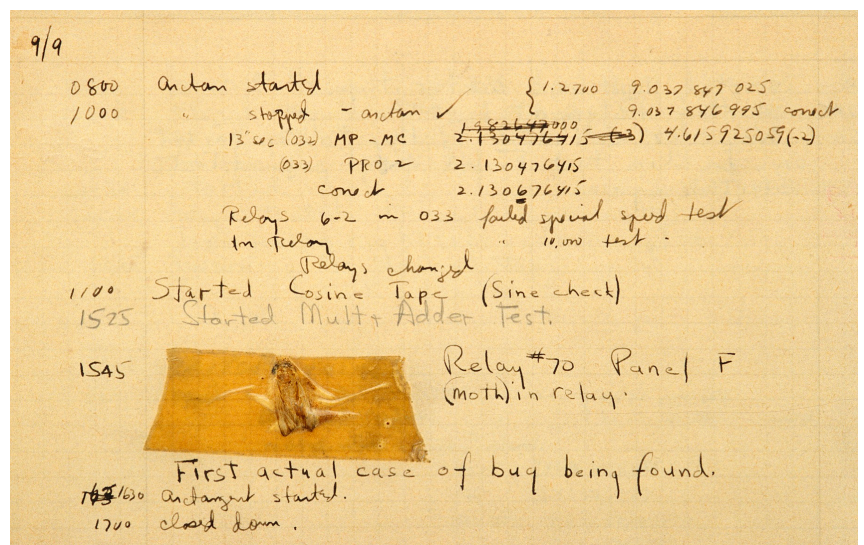 9/9
0800 arctan started { 1.2700 9.037 847 025
1000 " stopped - arctan ✓ 9.037 846 995 correct
13" sec (032) MP - MC 2.130476415 (-3) 4.615925059(-2)
(033) PRO 2 2.130476415
correct 2.130676415
Relays 6-2 in 033 failed special speed test
In Relay " 10,000 test .
Relays changed
1100 Started Cosine Tape (Sine check)
1525 Started Mult + Adder Test.
1545 Relay #70 Panel F
(moth) in relay.
First actual case of bug being found.
1630 arctangent started.
1700 closed down .